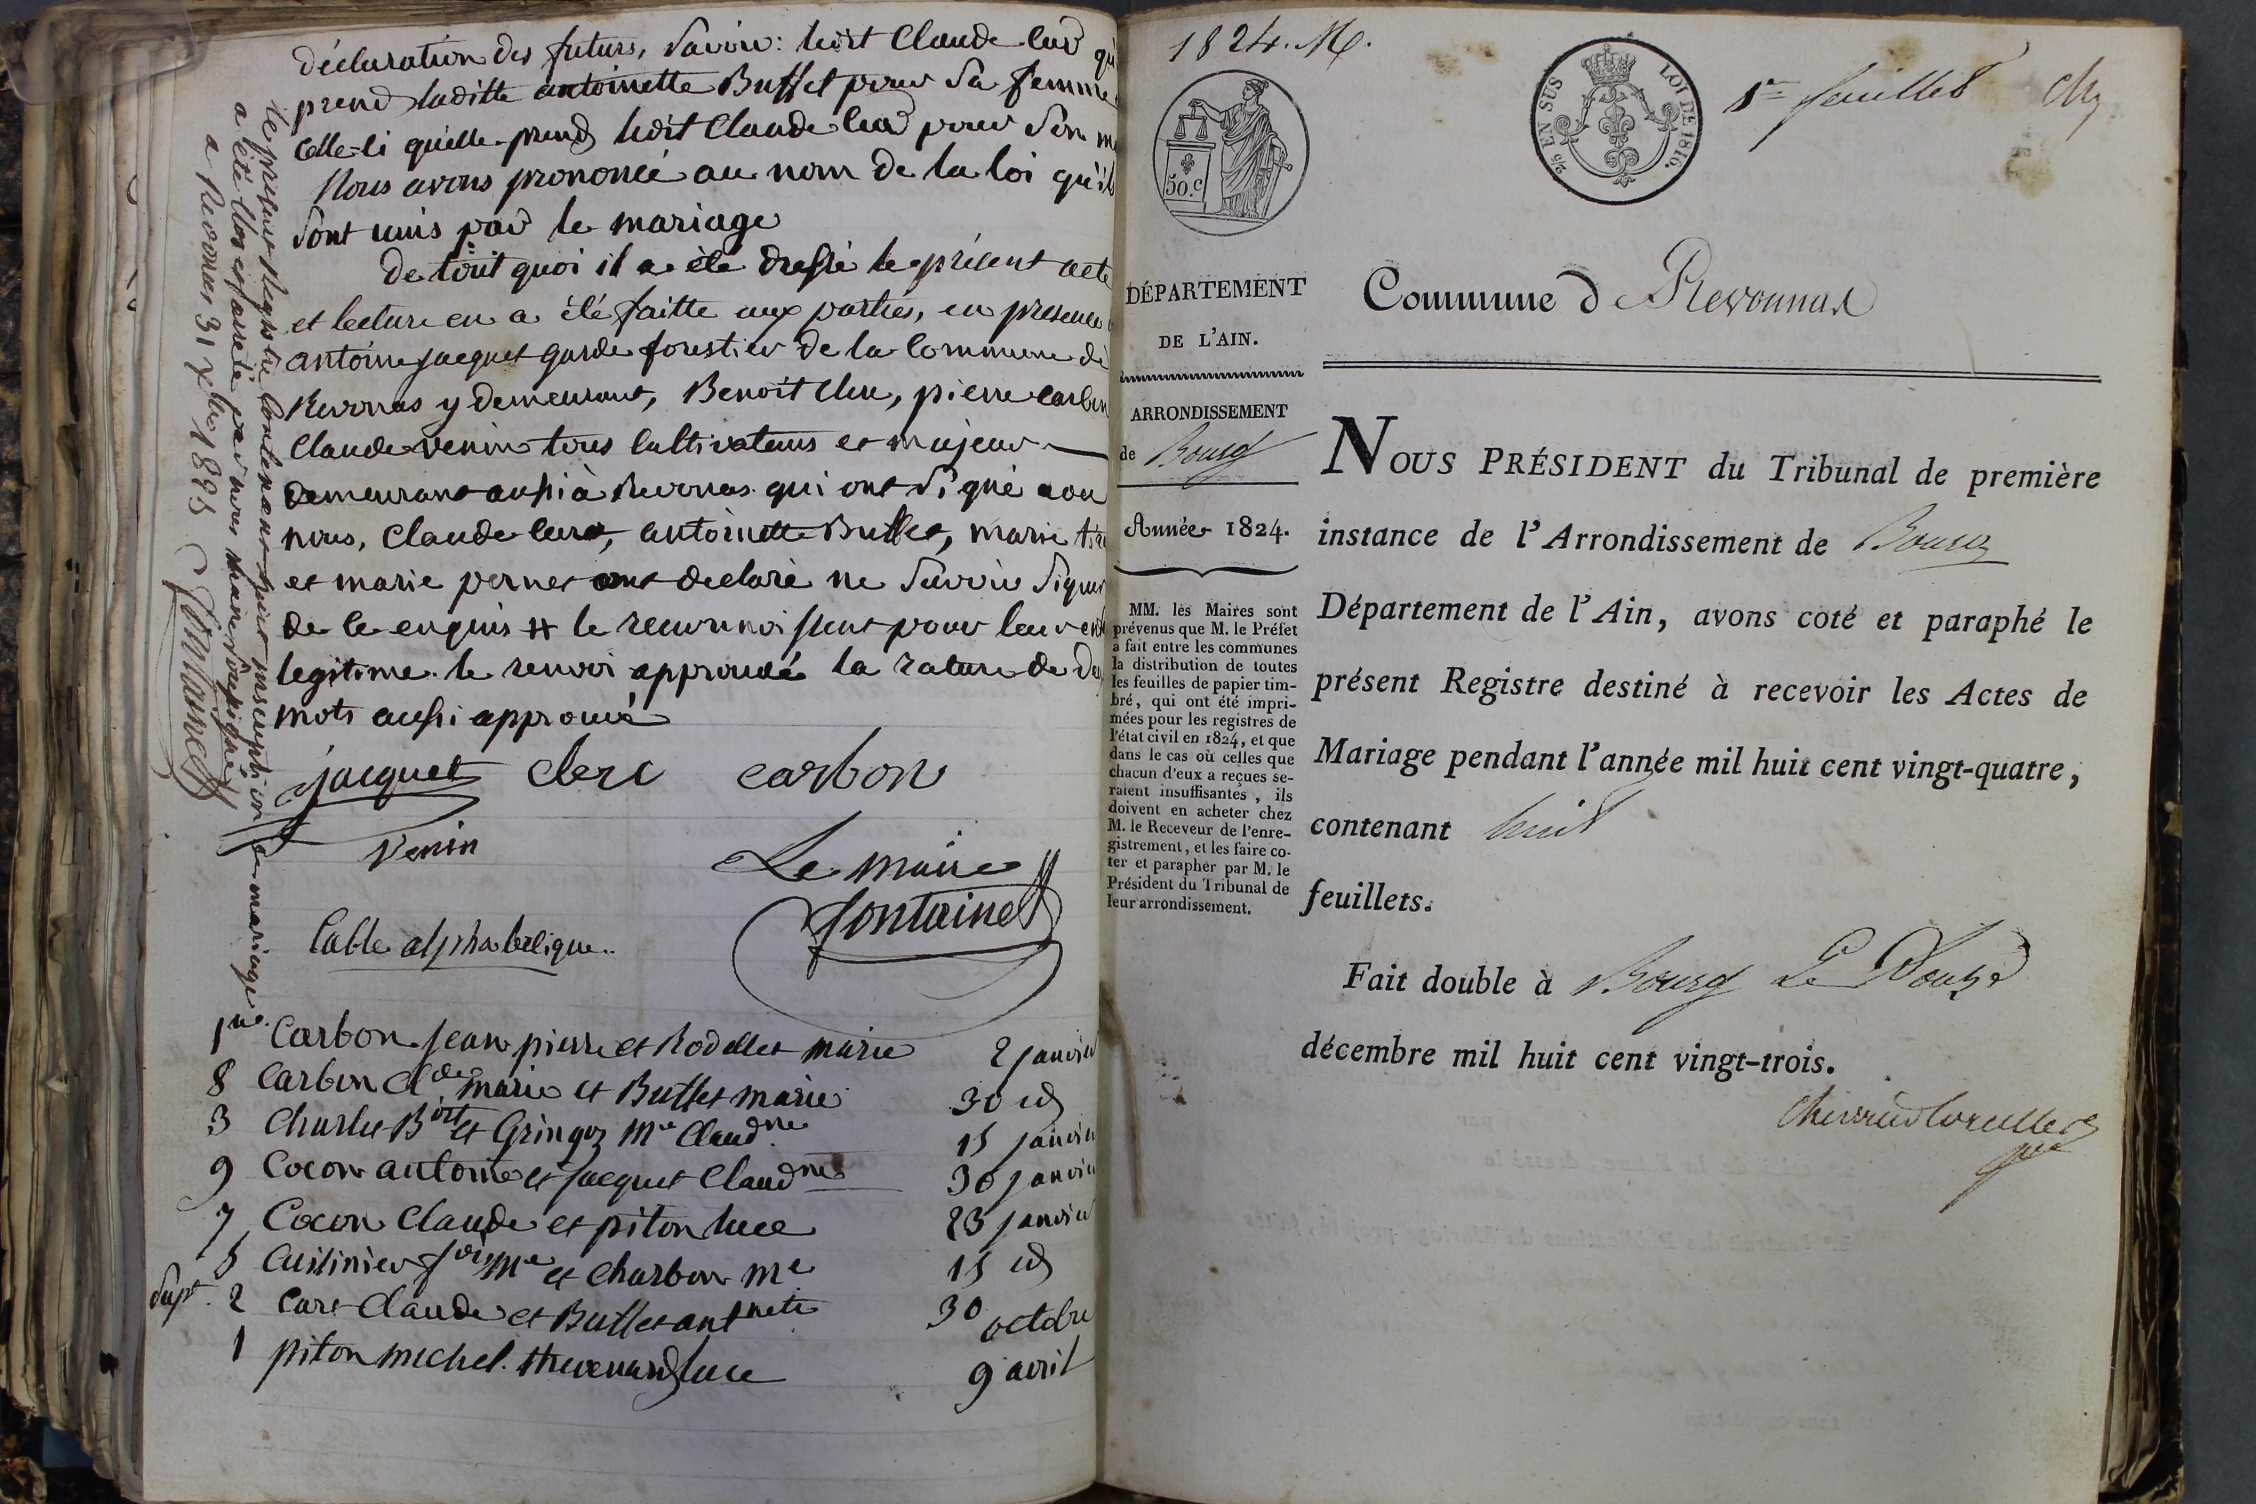 déclaration des futurs, savoir: ledit Claude
prend laditte antoinette Buffet pour sa femme
celle-ci quelle prend ledit Claude pour son
Nous avons prononcé au nom de la loi qu'ils
sont unis par le mariage
De tout quoi il a été dressé le présent acte
et lecture en a été faitte aux parties, en presence
antoine jacquet garde forestier de la Commune de
Revonas y demeurant, Benoit Clerc, pierre carbon
Claude venin tous cultivateurs et majeur
demeurant aussi à Revonas qui ont signé avec
nous, Claude antoinette Buffet, marie
et marie pernet ont declaré ne savoir signer
de ce enquis # le reconnoissent pour leur
legitime. le renvoi approuvé la rature de
mots aussi approuvé
jacquet clerc carbon
venin
Le maire
fontaine
le present Registre contenant huit inscription de mariage
a été clos et arrêté par nous maire soussigné
a Revonas 31 Xbre 1823
fontaine
table alphabetique..
1re Carbon jean pierre et Rodellet marie 2 janvier
8 Carbon Cde marie et Buffet marie 30 id
3 Charles Boit et Gringoz Me Claudne 15 janvier
9 Cocon antoine et jacquet Claudne 30 janvier
7 Cocon Claude et piton luce 23 janvier
5 Cuisinier Me et Charbon Me 15 id
supt. 2 Curt Claude et Buffet antnette 30 octobre
1 piton michel. thevenard luce 9 avril
1824. M.
50.c
2/5 EN SUS
LOI DE 1816.
1er feuillet
DÉPARTEMENT
DE L'AIN.
ARRONDISSEMENT
de Bourg
Année 1824.
MM. les Maires sont
prévenus que M. le Préfet
a fait entre les communes
la distribution de toutes
les feuilles de papier tim-
bré, qui ont été impri-
mées pour les registres de
l'état civil en 1824, et que
dans le cas où celles que
chacun d'eux a reçues se-
raient insuffisantes, ils
doivent en acheter chez
M. le Receveur de l'enre-
gistrement, et les faire co-
ter et parapher par M. le
Président du Tribunal de
leur arrondissement.
Commune d Revonnas
NOUS PRÉSIDENT du Tribunal de première
instance de l'Arrondissement de Bourg
Département de l'Ain, avons coté et paraphé le
présent Registre destiné à recevoir les Actes de
Mariage pendant l'année mil huit cent vingt-quatre,
contenant huit
feuillets.
Fait double à Bourg Le Douze
décembre mil huit cent vingt-trois.